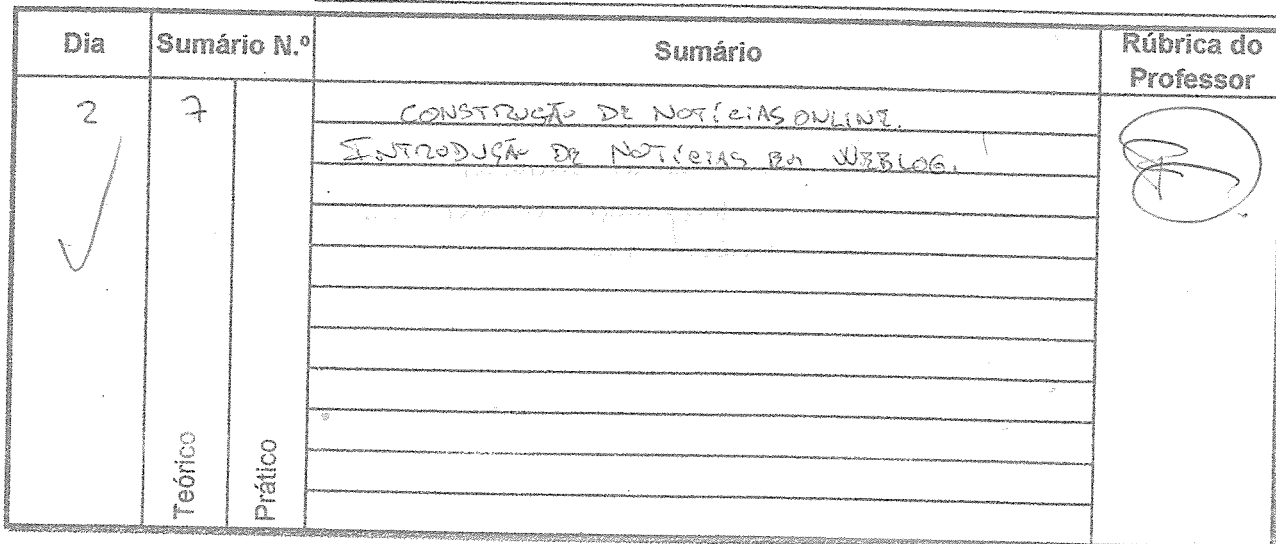 Dia Sumário N.º Sumário Rúbrica do Professor
2 7 CONSTRUÇÃO DE NOTÍCIAS ONLINE.
INTRODUÇÃO DE NOTÍCIAS EM WEBLOG.
Teórico Prático